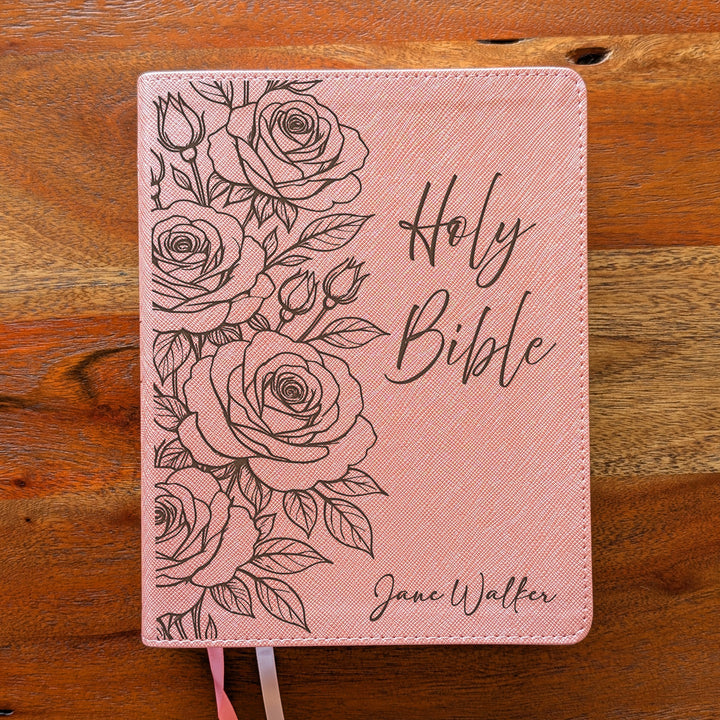 Holy
Bible
Jane Walker